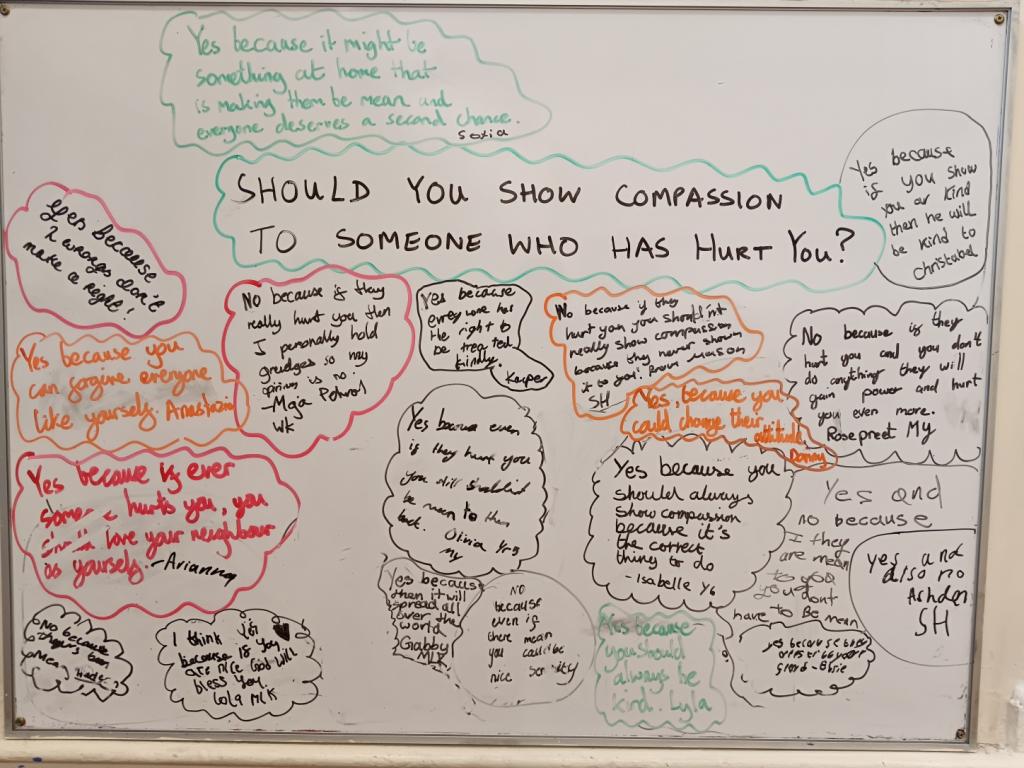 Yes because it might be
something at home that
is making them be mean and
everyone deserves a second chance.
SHOULD YOU SHOW COMPASSION
TO SOMEONE WHO HAS HURT YOU?
Yes because
if you show
you ar kind
then he will
be kind to
christabel
Yes because
2 wrongs don't
make a right!
No because if they
really hurt you then
I personally hold
grudges so my
opinion is no.
-Maja
WK
Yes because
everyone has
the right to
be treated
kindly.
Kacper
No because if they
hurt you you shouldn't
really show compassion
because they never shown
it to you! From Mason
SH
No because if they
hurt you and you don't
do anything they will
gain power and hurt
you even more.
Rosepreet My
Yes because you
can forgive everyone
like yourself. Anastazia
Yes, because you
could change their
attitude.
Danny
Yes because even
if they hurt you
you still shouldnt
be mean to them
back. Olivia Yr5
My
Yes because you
should always
show compassion
because it's
the correct
thing to do
-Isabelle Y6
Yes and
no because
I they
are mean
to you
you dont
have to Be mean
Yes because if ever
hurts you, you
love your neighbour
as yourself. -Arianna
yes and
also no
Ashden
SH
Yes because
then it will
spread all
over the
world
Gabby
No because
mean
I think Yes
because if you
are nice God will
bless you
Lola MLK
NO
because
even if
there mean
you could be
nice
Yes because
you should
always be
kind. Lyla
yes because